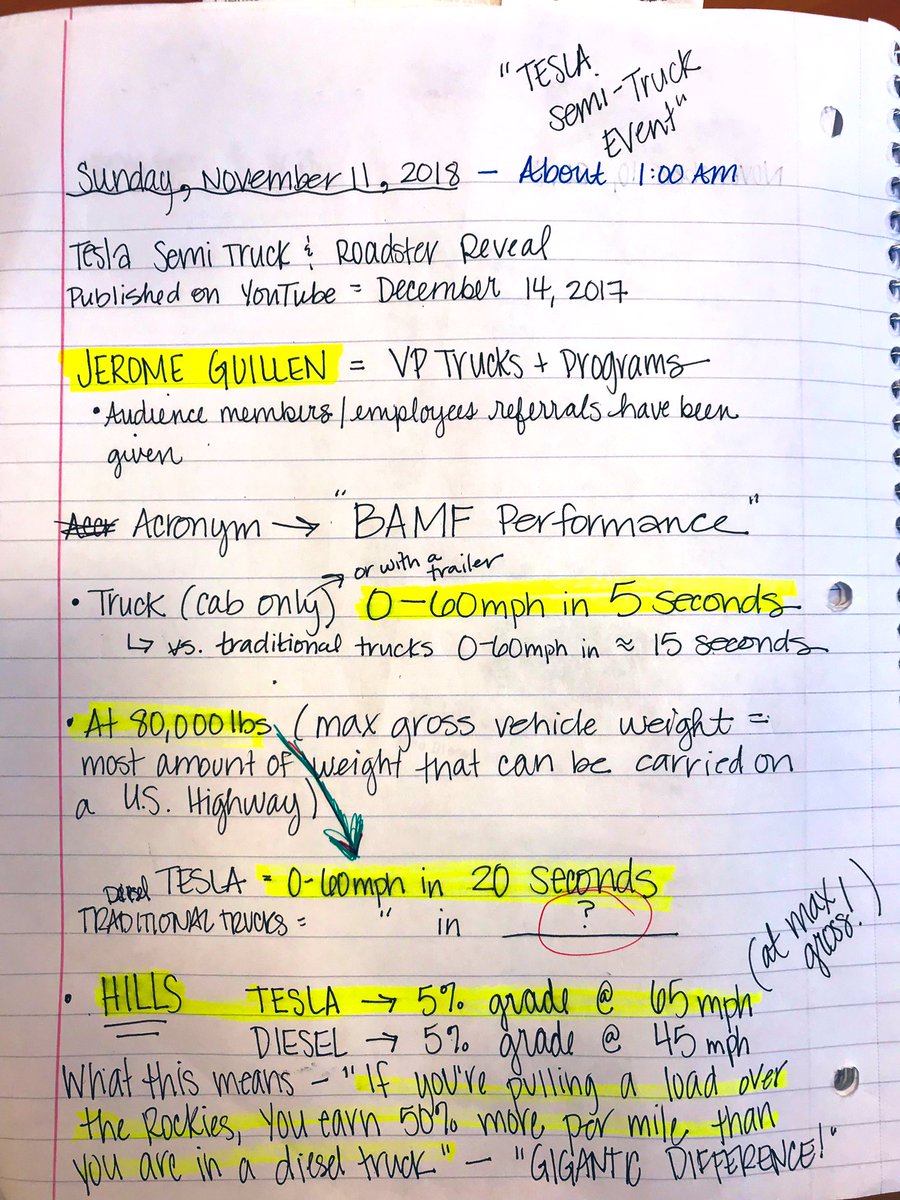 "TESLA
Semi-Truck
Event"
Sunday, November 11, 2018 - About 1:00 AM
Tesla Semi Truck & Roadster Reveal
Published on YouTube = December 14, 2017
JEROME GUILLEN = VP Trucks + Programs
• Audience members/employees referrals have been
given
Acronym → "BAMF Performance"
or with a trailer
• Truck (cab only) 0-60mph in 5 seconds
↳ vs. traditional trucks 0-60mph in ≈ 15 seconds
• At 80,000lbs (max gross vehicle weight =
most amount of weight that can be carried on
a U.S. Highway)
TESLA = 0-60mph in 20 seconds
Diesel
TRADITIONAL TRUCKS = " in ?
(at max gross!)
• HILLS TESLA → 5% grade @ 65mph
DIESEL → 5% grade @ 45 mph
What this means - "If you're pulling a load over
the Rockies, you earn 50% more per mile than
you are in a diesel truck" - "GIGANTIC DIFFERENCE!"